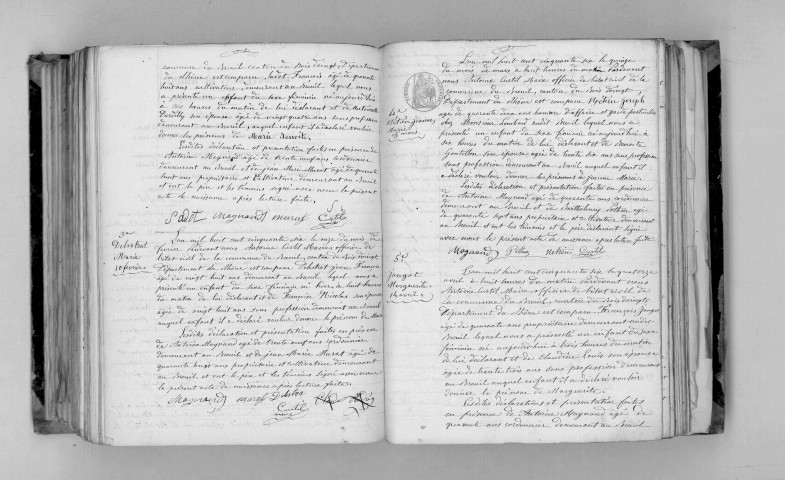 commune du Breuil canton du Bois d'oingt département
du Rhône est comparu Sadot François âgé de quarante
huit ans cultivateur demeurant au Breuil lequel nous
a présenté un enfant du sexe féminin né aujourd'hui
à six heures du matin de lui déclarant et de Antoinette
son épouse âgée de vingt quatre ans sans profession
demeurant au Breuil, auquel enfant il a déclaré vouloir
donner les prénoms de Marie Benoite.
Lesdites déclaration et présentation faites en présence de
Antoine Maynand âgé de trente neuf ans cordonnier
demeurant au Breuil et de Jean Marie Murat âgé de quarante
huit ans propriétaire et cultivateur demeurant au Breuil
et ont le père et les témoins signé avec nous le présent
acte de naissance après lecture faite.
Sadot Maynand Murat Curtil
3e
Debertrat
Marie
10 février
L'an mil huit cent cinquante six le onze du mois de
février pardevant nous Antoine Curtil Maire officier de
l'état civil de la commune du Breuil, canton du Bois d'oingt,
Département du Rhône est comparu Jean François
âgé de vingt huit ans demeurant au Breuil lequel nous a
présenté un enfant du sexe féminin né hier à huit heures
du matin de lui déclarant et de Françoise Nicolas son épouse
âgée de vingt huit ans sans profession demeurant au Breuil
auquel enfant il a déclaré vouloir donner le prénom de Marie
Lesdites déclaration et présentation faites en présence
de Antoine Maynand âgé de trente neuf ans cordonnier
demeurant au Breuil et de Jean Marie Murat âgé de
quarante huit ans propriétaire et cultivateur demeurant
au Breuil et ont le père et les témoins signé avec nous
le présent acte de naissance après lecture faite.
Maynand Murat
Curtil
maire
4e
Jeanne
Marie
15 mars
L'an mil huit cent cinquante six le quinze
du mois de mars à huit heures du matin Pardevant
nous Antoine Curtil Maire officier de l'état civil de la
commune du Breuil, canton du Bois d'oingt,
Département du Rhône est comparu Joseph
âgé de quarante deux ans homme d'affaire et garde particulier
chez Monsieur demeurant audit Breuil lequel nous a
présenté un enfant du sexe féminin né aujourd'hui à
six heures du matin de lui déclarant et de Benoite
son épouse âgée de trente six ans sans profession
demeurant au Breuil auquel enfant il
a déclaré vouloir donner les prénoms de Jeanne Marie.
Lesdites déclaration et présentation faites en présence
de Antoine Maynand âgé de quarante ans cordonnier
demeurant au Breuil et de Barthelemy Pothin âgé
de quarante sept ans propriétaire et cultivateur demeurant
au Breuil et ont les témoins et le père déclarant signé
avec nous le présent acte de naissance après lecture faite
Maynand Curtil
5e
Jangot
Marguerite
14 avril
L'an mil huit cent cinquante six le quatorze
avril à huit heures du matin pardevant nous
Antoine Curtil Maire, officier de l'état civil de
la commune du Breuil, canton du Bois d'oingt
Département du Rhône est comparu François Jangot
âgé de quarante ans propriétaire demeurant audit
Breuil lequel nous a présenté un enfant du sexe
féminin né aujourd'hui à trois heures du matin
de lui déclarant et de Claudine Louis son épouse
âgée de trente trois ans sans profession demeurant
au Breuil auquel enfant il a déclaré vouloir
donner le prénom de Marguerite.
Lesdites déclaration et présentation faites
en présence de Antoine Maynand âgé de
quarante ans cordonnier demeurant au Breuil